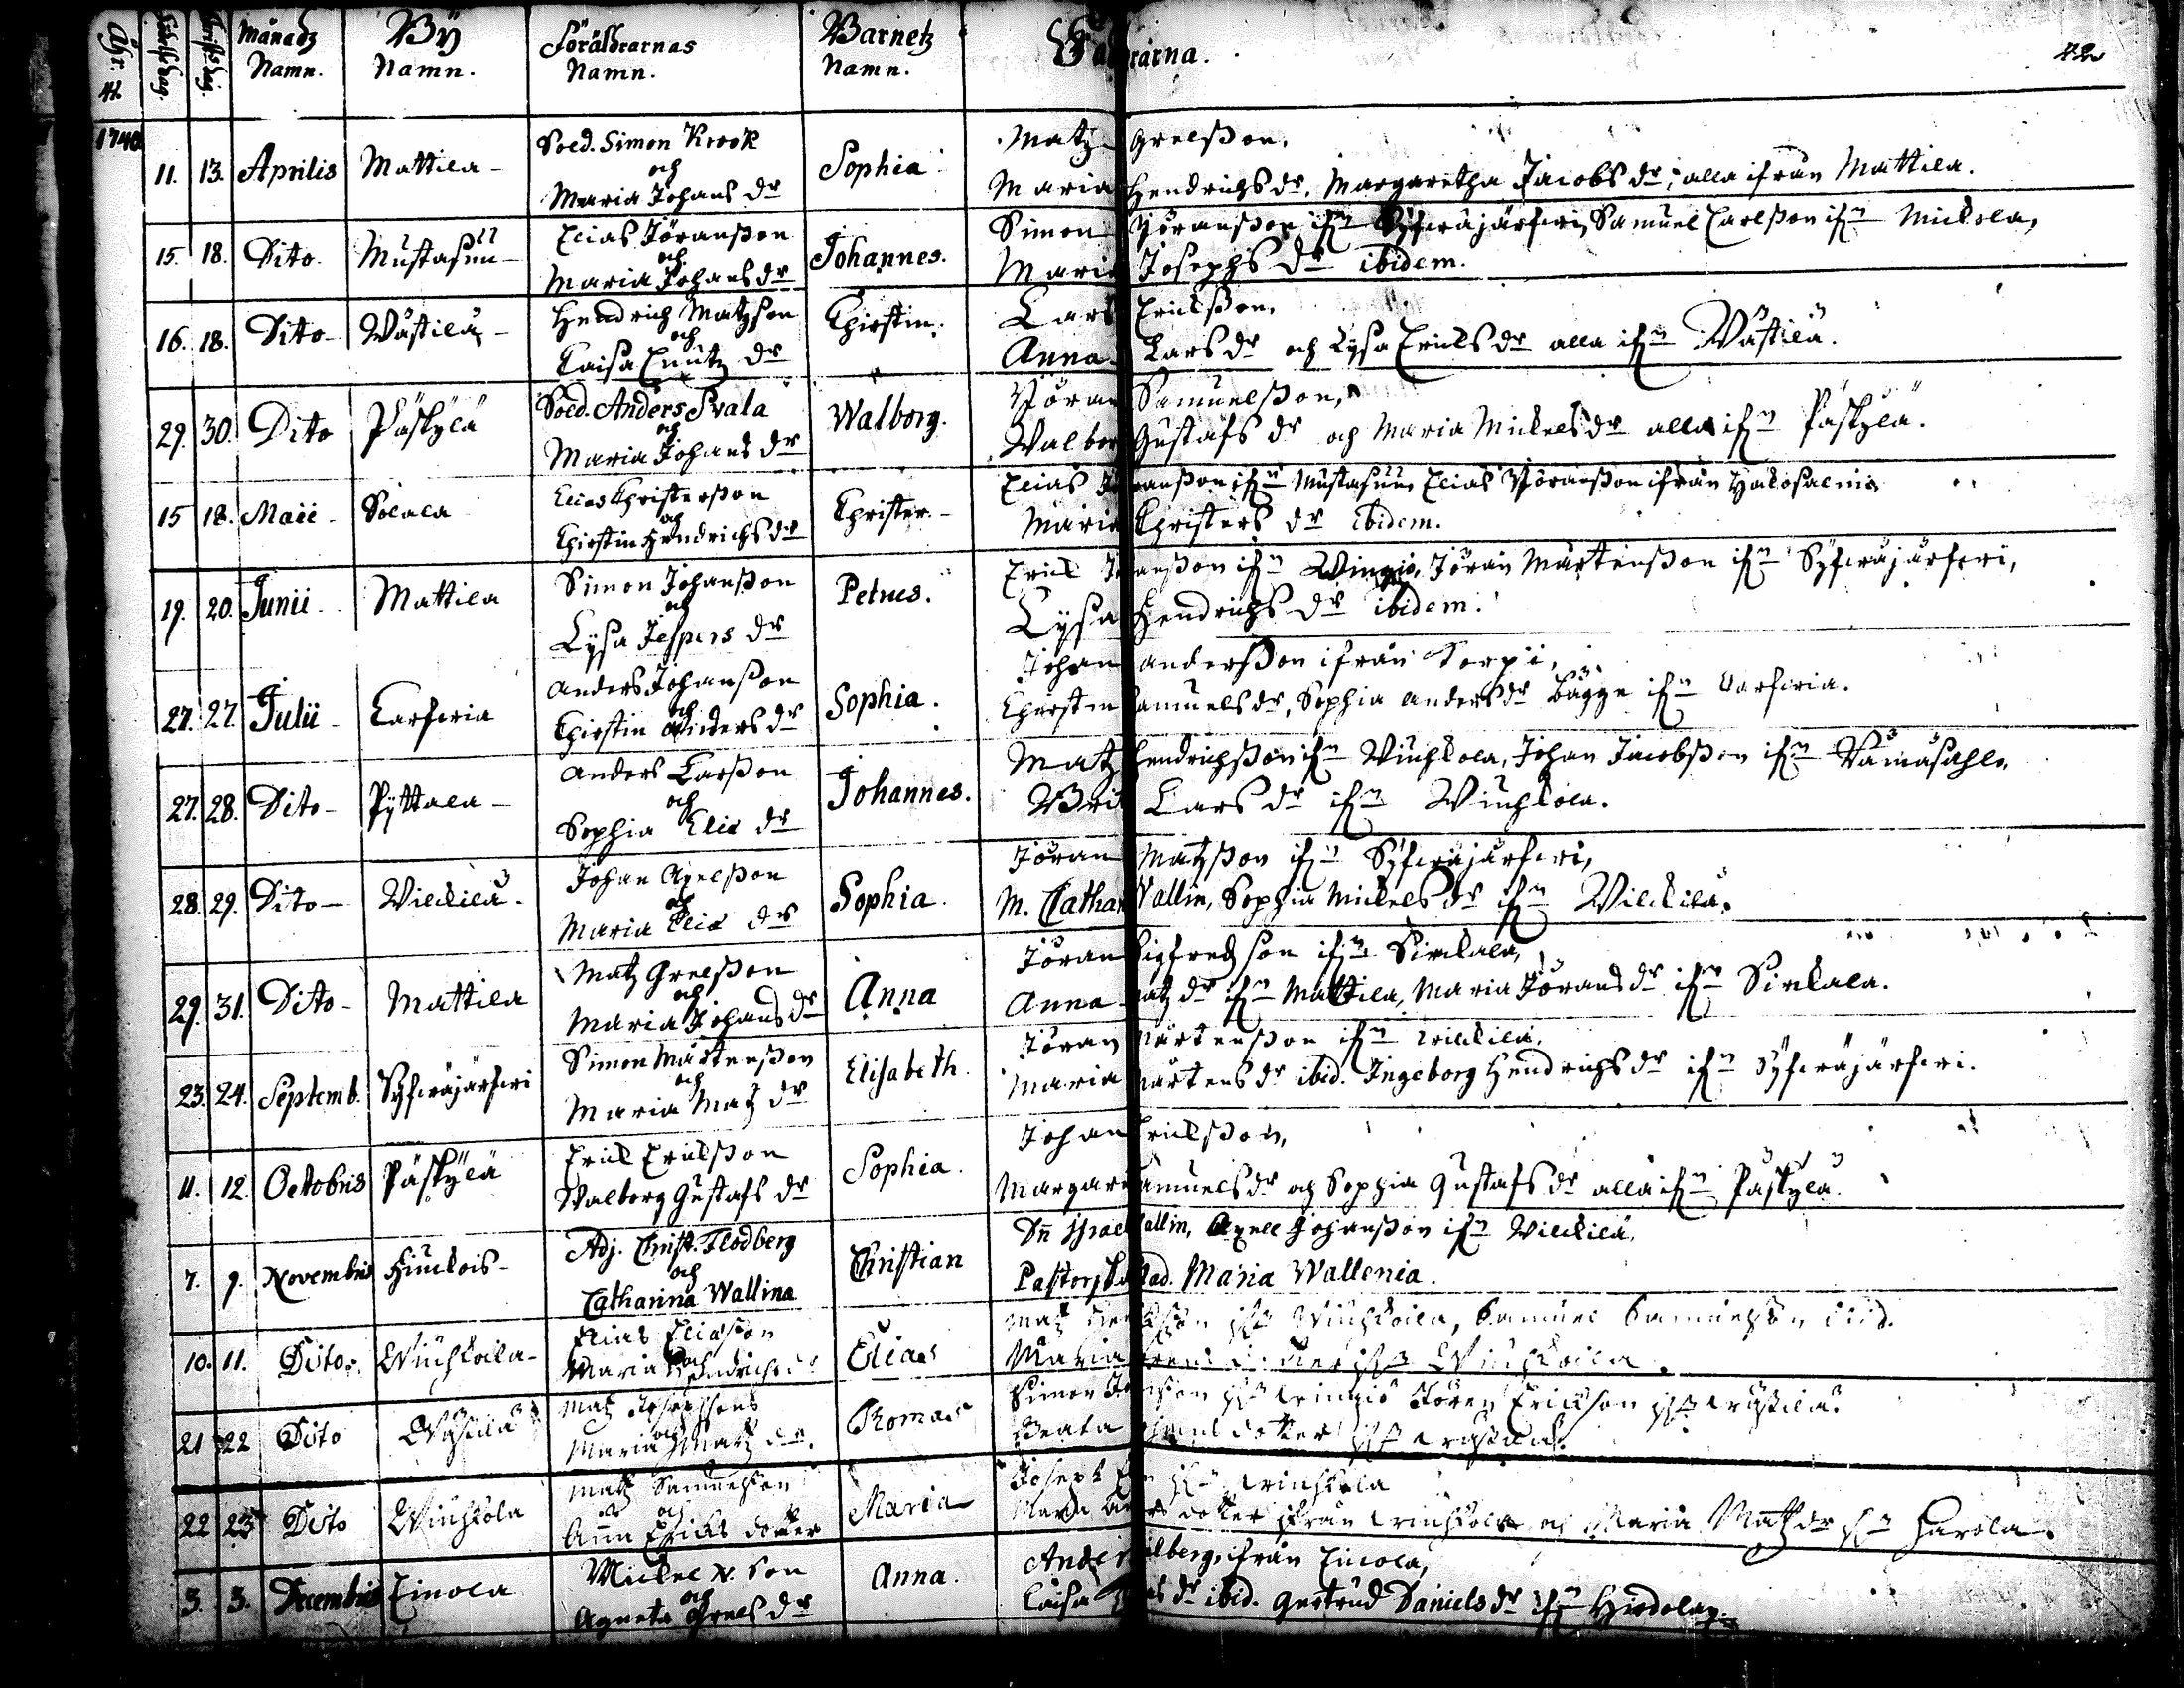 Åhr. Födelse dag. Christs dag. Månadz Namn. Bÿ Namn. Föräldrarnas Namn. Barnetz Namn. Faddrarna. 42
42
1740
11. 13. Aprilis Mattila - Sold. Simon Krook och Maria Johans dr Sophia
Matz Grelsson.
Maria Hendrichs dr. Margaretha Jacobs dr, alla ifrån Mattila.
15. 18. Dito. Mustasuu - Elias Jöransson och Maria Johans dr Johannes.
Simon Jöransson ifn Syfwäjärfwi, Samuel Carlsson ifn Mickola,
Maria Josephs dr ibidem.
16. 18. Dito - Wästilä - Hendrich Matzson och Caisa Cnutz dr Chirstin.
Lars Erichsson.
Anna Lars dr och Lysa Erichs dr alla ifn Wästilä.
29. 30. Dito Päskylä Sold. Anders Svala och Maria Johans dr Walborg.
Jöran Samuelsson,
Walborg Gustafs dr och Maria Mickels dr alla ifn Päskylä.
15 18. Maii - Solala Elias Christersson och Chirstin Hendrichs dr Christer. -
Elias Jöransson ifn Mustasuu, Elias Jöransson ifrån
Maria Christers dr ibidem.
19. 20. Junii. Mattila Simon Johansson och Lysa Jespers dr Petrus.
Erick ifn Wingiö, Jöran Mårtensson ifn Syfwäjärfwi,
Lysa Hendrichs dr ibidem.
27. 27. Julii - Carfwia Anders Johansson och Chirstin Anders dr Sophia.
Johan Andersson ifrån Torpi,
Chirstin Samuels dr, Sophia Anders dr Bagge ifn Carfwia.
27. 28. Dito - Pyttala - Anders Larsson och Sophia Elis dr Johannes.
Matz Hendrichsson ifn Wiuhkola, Johan Jacobsson ifn
Brita Lars dr ifn Wiuhkola.
28. 29. Dito - Wickilä. Johan Axelsson och Maria Elis dr Sophia.
Jöran Matzson ifn Syfwäjärfwi,
M. Cathar. Wallin, Sophia Mickels dr ifn Wickilä.
29. 31. Dito - Mattila Matz Grelsson och Maria Johans dr Anna
Jöran Sigfredsson ifn Sirckala,
Anna Matz dr ifn Mattila, Maria Jörans dr ifn Sirckala.
23. 24. Septemb. Syfwäjärfwi Simon Mårtensson och Maria Matz dr Elisabeth.
Jöran Mårtensson ifn Wickilä,
Maria Mårtens dr ibid. Ingeborg Hendrichs dr ifn Syfwäjärfwi.
11. 12. Octobris Päskylä Erick Ericksson Walborg Gustafs dr Sophia.
Johan Ericksson,
Margar. Samuels dr och Sophia Gustafs dr alla ifn Päskylä.
7. 9. Novembris Adj. Christ. Flodberg och Catharina Wallina Christian
Dn Israel Wallin, Axell Johansson ifn Wickilä,
Maria Wallenia.
10. 11. Dito. Wiuhkola - Elias Eliasson och Maria Hendrichs dr Elias
Matz ifn Wiuhkola, Samuel Samuelsson ibid.
Maria ifn Wiuhkola.
21 22 Dito Wästilä Matz Josephsons och Maria Matz dr. Thomas
Simon ifn Wingiö Jören Erickson ifn Wästilä.
Beata dotter ifn Wästilä.
22 23 Dito Wiuhkola Matz Samuelsson och Ann Ericks dotter Maria
Joseph ifn Wiuhkola
Maria dotter ifrån Wiuhkola och Maria Matz dr ifn Harola.
3. 3. Decembris Einola Mickel N. Son och Agneta Grels dr Anna.
Anders ifrån Einola,
Caisa ibid. Gertrud Daniels dr ifn Hirdola.